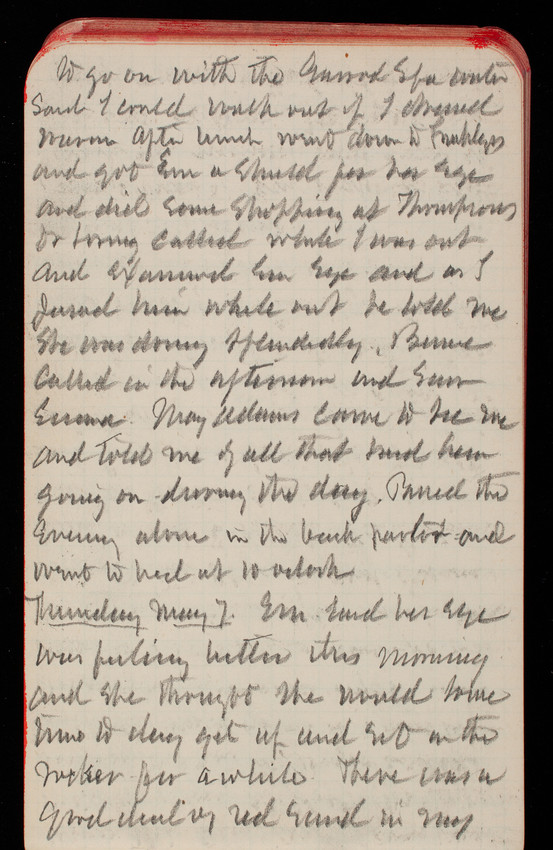 to go on with the Garrod Spa water
Said I could walk out if I dressed
warm After lunch went down to
and got Em a Shield for her Eye
and did Some Shopping at Thompsons
Dr called while I was out
and Examined Em Eye and as I
found him while out he told me
She was doing Splendidly.
Called in the afternoon and Saw
Emma. May Adams came to see me
and told me of all that had been
going on during the day. Passed the
Evening alone in the back parlor and
went to bed at 10 oclock
Thursday May 7. Em Said her Eye
was feeling better this morning
and She thought She would some
time to day get up and Sit in the
rocker for a while. There was a
good deal of red Sand in my